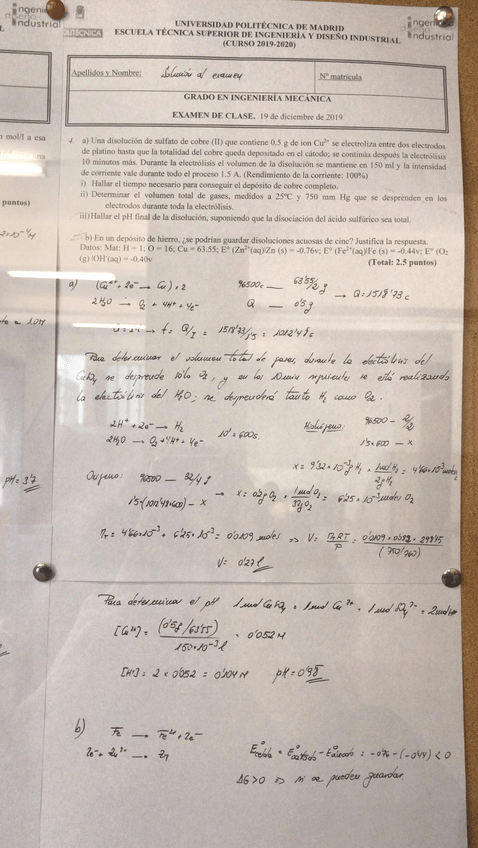 ingenie
industrial
ingenie
diseño
industrial
POLITÉCNICA
UNIVERSIDAD POLITÉCNICA DE MADRID
ESCUELA TÉCNICA SUPERIOR DE INGENIERÍA Y DISEÑO INDUSTRIAL
(CURSO 2019-2020)
Apellidos y Nombre: Solución al examen
Nº matrícula
GRADO EN INGENIERÍA MECÁNICA
EXAMEN DE CLASE. 19 de diciembre de 2019
n mol/l a esa
puntos)
a) Una disolución de sulfato de cobre (II) que contiene 0.5 g de ion Cu²⁺ se electroliza entre dos electrodos
de platino hasta que la totalidad del cobre queda depositado en el cátodo; se continúa después la electrólisis
10 minutos más. Durante la electrólisis el volumen de la disolución se mantiene en 150 ml y la intensidad
de corriente vale durante todo el proceso 1.5 A. (Rendimiento de la corriente: 100%)
i) Hallar el tiempo necesario para conseguir el depósito de cobre completo.
ii) Determinar el volumen total de gases, medidos a 25ºC y 750 mm Hg que se desprenden en los
electrodos durante toda la electrólisis.
iii) Hallar el pH final de la disolución, suponiendo que la disociación del ácido sulfúrico sea total.
b) En un depósito de hierro, ¿se podrían guardar disoluciones acuosas de cinc? Justifica la respuesta.
Datos: Mat: H = 1; O = 16; Cu = 63.55; E° (Zn²⁺(aq)/Zn (s) = -0.76v; E° (Fe²⁺(aq)/Fe (s) = -0.44v; E° (O₂
(g) /OH⁻(aq) = -0.40v
(Total: 2.5 puntos)
a) (Cu²⁺ + 2e⁻ → Cu) × 2
2H₂O → O₂ + 4H⁺ + 4e⁻
96500c — 63'55/2 g
Q — 0'5 g
→ Q = 1518'73 c
→ t = Q/I = 1518'73/1'5 = 1012'48 s
Para determinar el volumen total de gases, durante la electrólisis del
CuSO₄ se desprende sólo O₂, y en los 10 min siguientes se está realizando
la electrólisis del H₂O, se desprenderá tanto H₂ como O₂.
2H⁺ + 2e⁻ → H₂
2H₂O → O₂ + 4H⁺ + 4e⁻
10' = 600s.
Hidrógeno: 96500 — 2/2
1'5 × 600 — x
x = 9'32 × 10⁻³ g H₂ × 1 mol H₂ / 2g H₂ = 4'66 × 10⁻³ moles
pH = 3'7
Oxígeno: 96500 — 32/4 g
1'5 × (1012'48 + 600) — x
→ x = 0'2 g O₂ × 1 mol O₂ / 32g O₂ = 6'25 × 10⁻³ moles O₂
n_T = 4'66 × 10⁻³ + 6'25 × 10⁻³ = 0'0109 moles ⇒ V = n_T RT / P = 0'0109 × 0'082 × 298'15 / (750/760)
V = 0'27 l
Para determinar el pH 1 mol CuSO₄ = 1 mol Cu²⁺ = 1 mol SO₄²⁻ = 2 mol H⁺
[Cu²⁺] = (0'5g / 63'55) / 150 × 10⁻³ l = 0'052 M
[H⁺] = 2 × 0'052 = 0'104 M pH = 0'98
b) Fe → Fe²⁺ + 2e⁻
2e⁻ + Zn²⁺ → Zn
E°celda = E°cátodo - E°ánodo = -0'76 - (-0'44) < 0
ΔG > 0 ⇒ si se pueden guardar